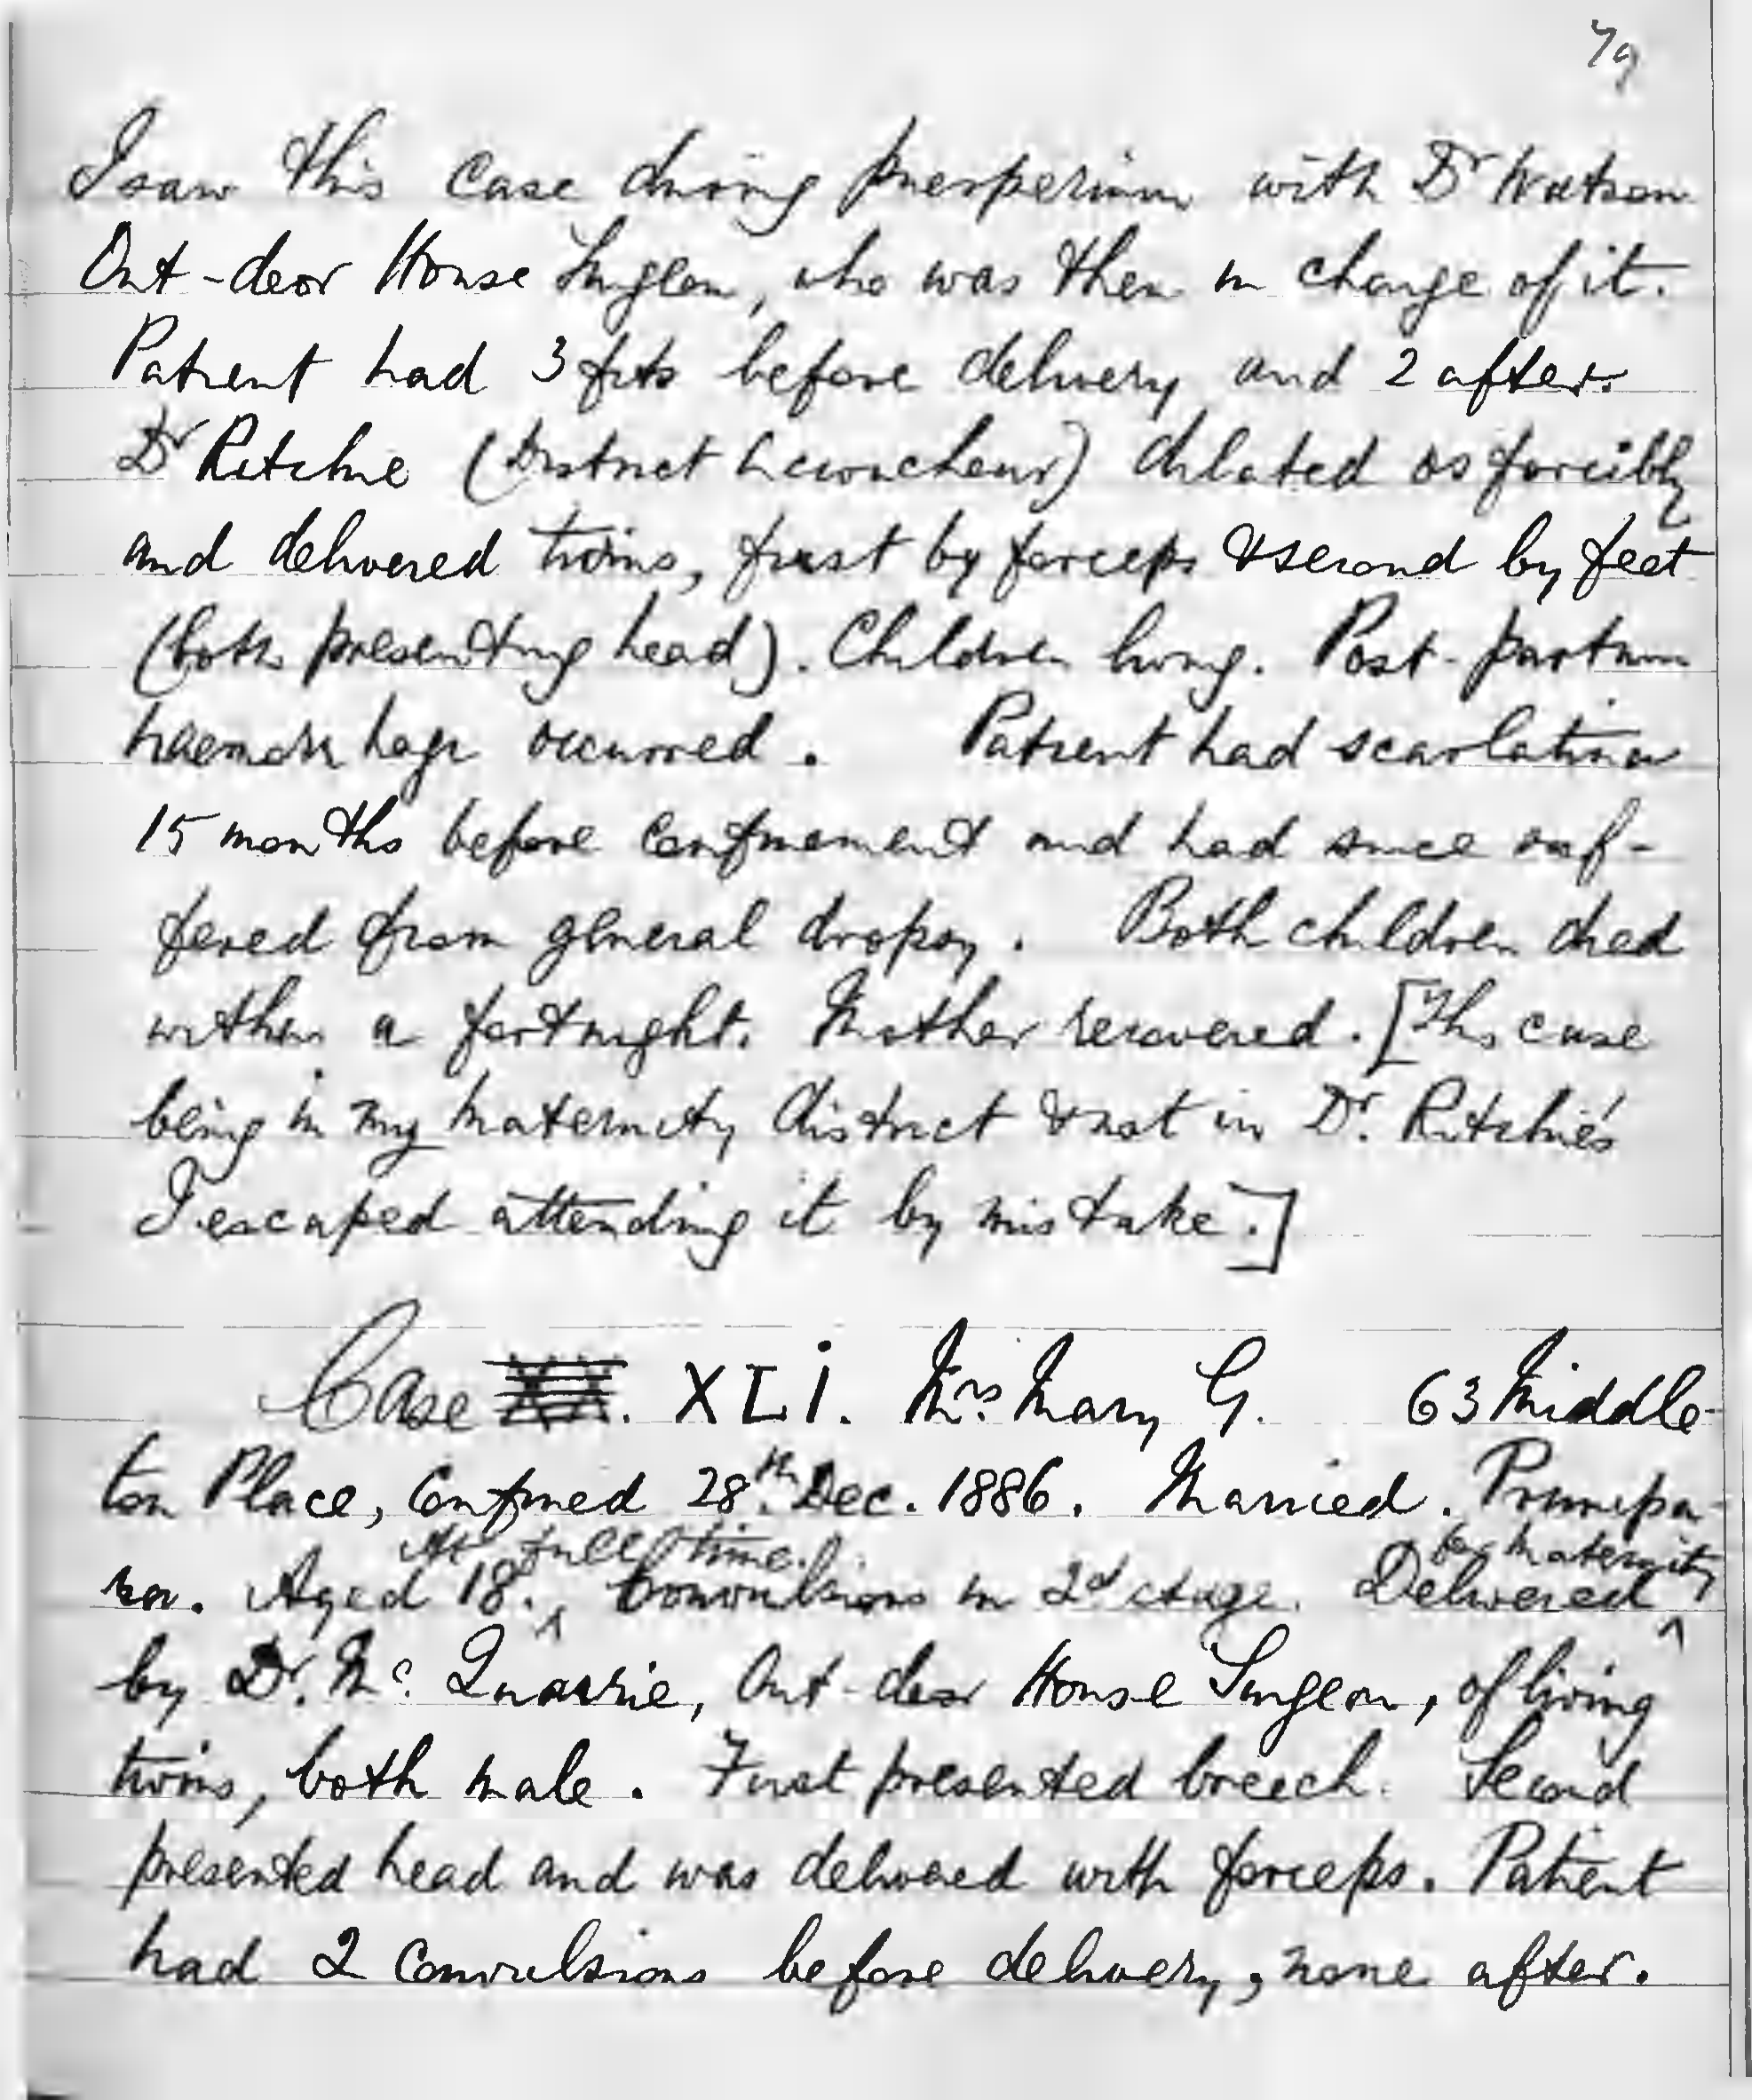 79
I saw this case during puerperium with Dr Watson
Out-door House Surgeon, who was then in charge of it.
Patient had 3 fits before delivery and 2 after.
Dr Ritchie (District Accoucheur) dilated os forcibly
and delivered twins, first by forceps & second by feet
(both presenting head). Children living. Post-partum
haemorrhage occurred. Patient had scarlatina
15 months before confinement and had since suf-
fered from general dropsy. Both children died
within a fortnight. Mother recovered. [This case
being in my maternity district & not in Dr. Ritchie's
I escaped attending it by mistake.]
Case XX. XLI. Mrs. Mary G. 63 Middle-
ton Place, Confined 28th. Dec. 1886. Married. Primipa-
At full time. by Maternity
ra. Aged 18. ^ Convulsions in 2d stage. Delivered ^
by Dr. Mc. Quarrie, Out-door House Surgeon, of living
twins, both male. First presented breech. Second
presented head and was delivered with forceps. Patient
had 2 convulsions before delivery, none after.